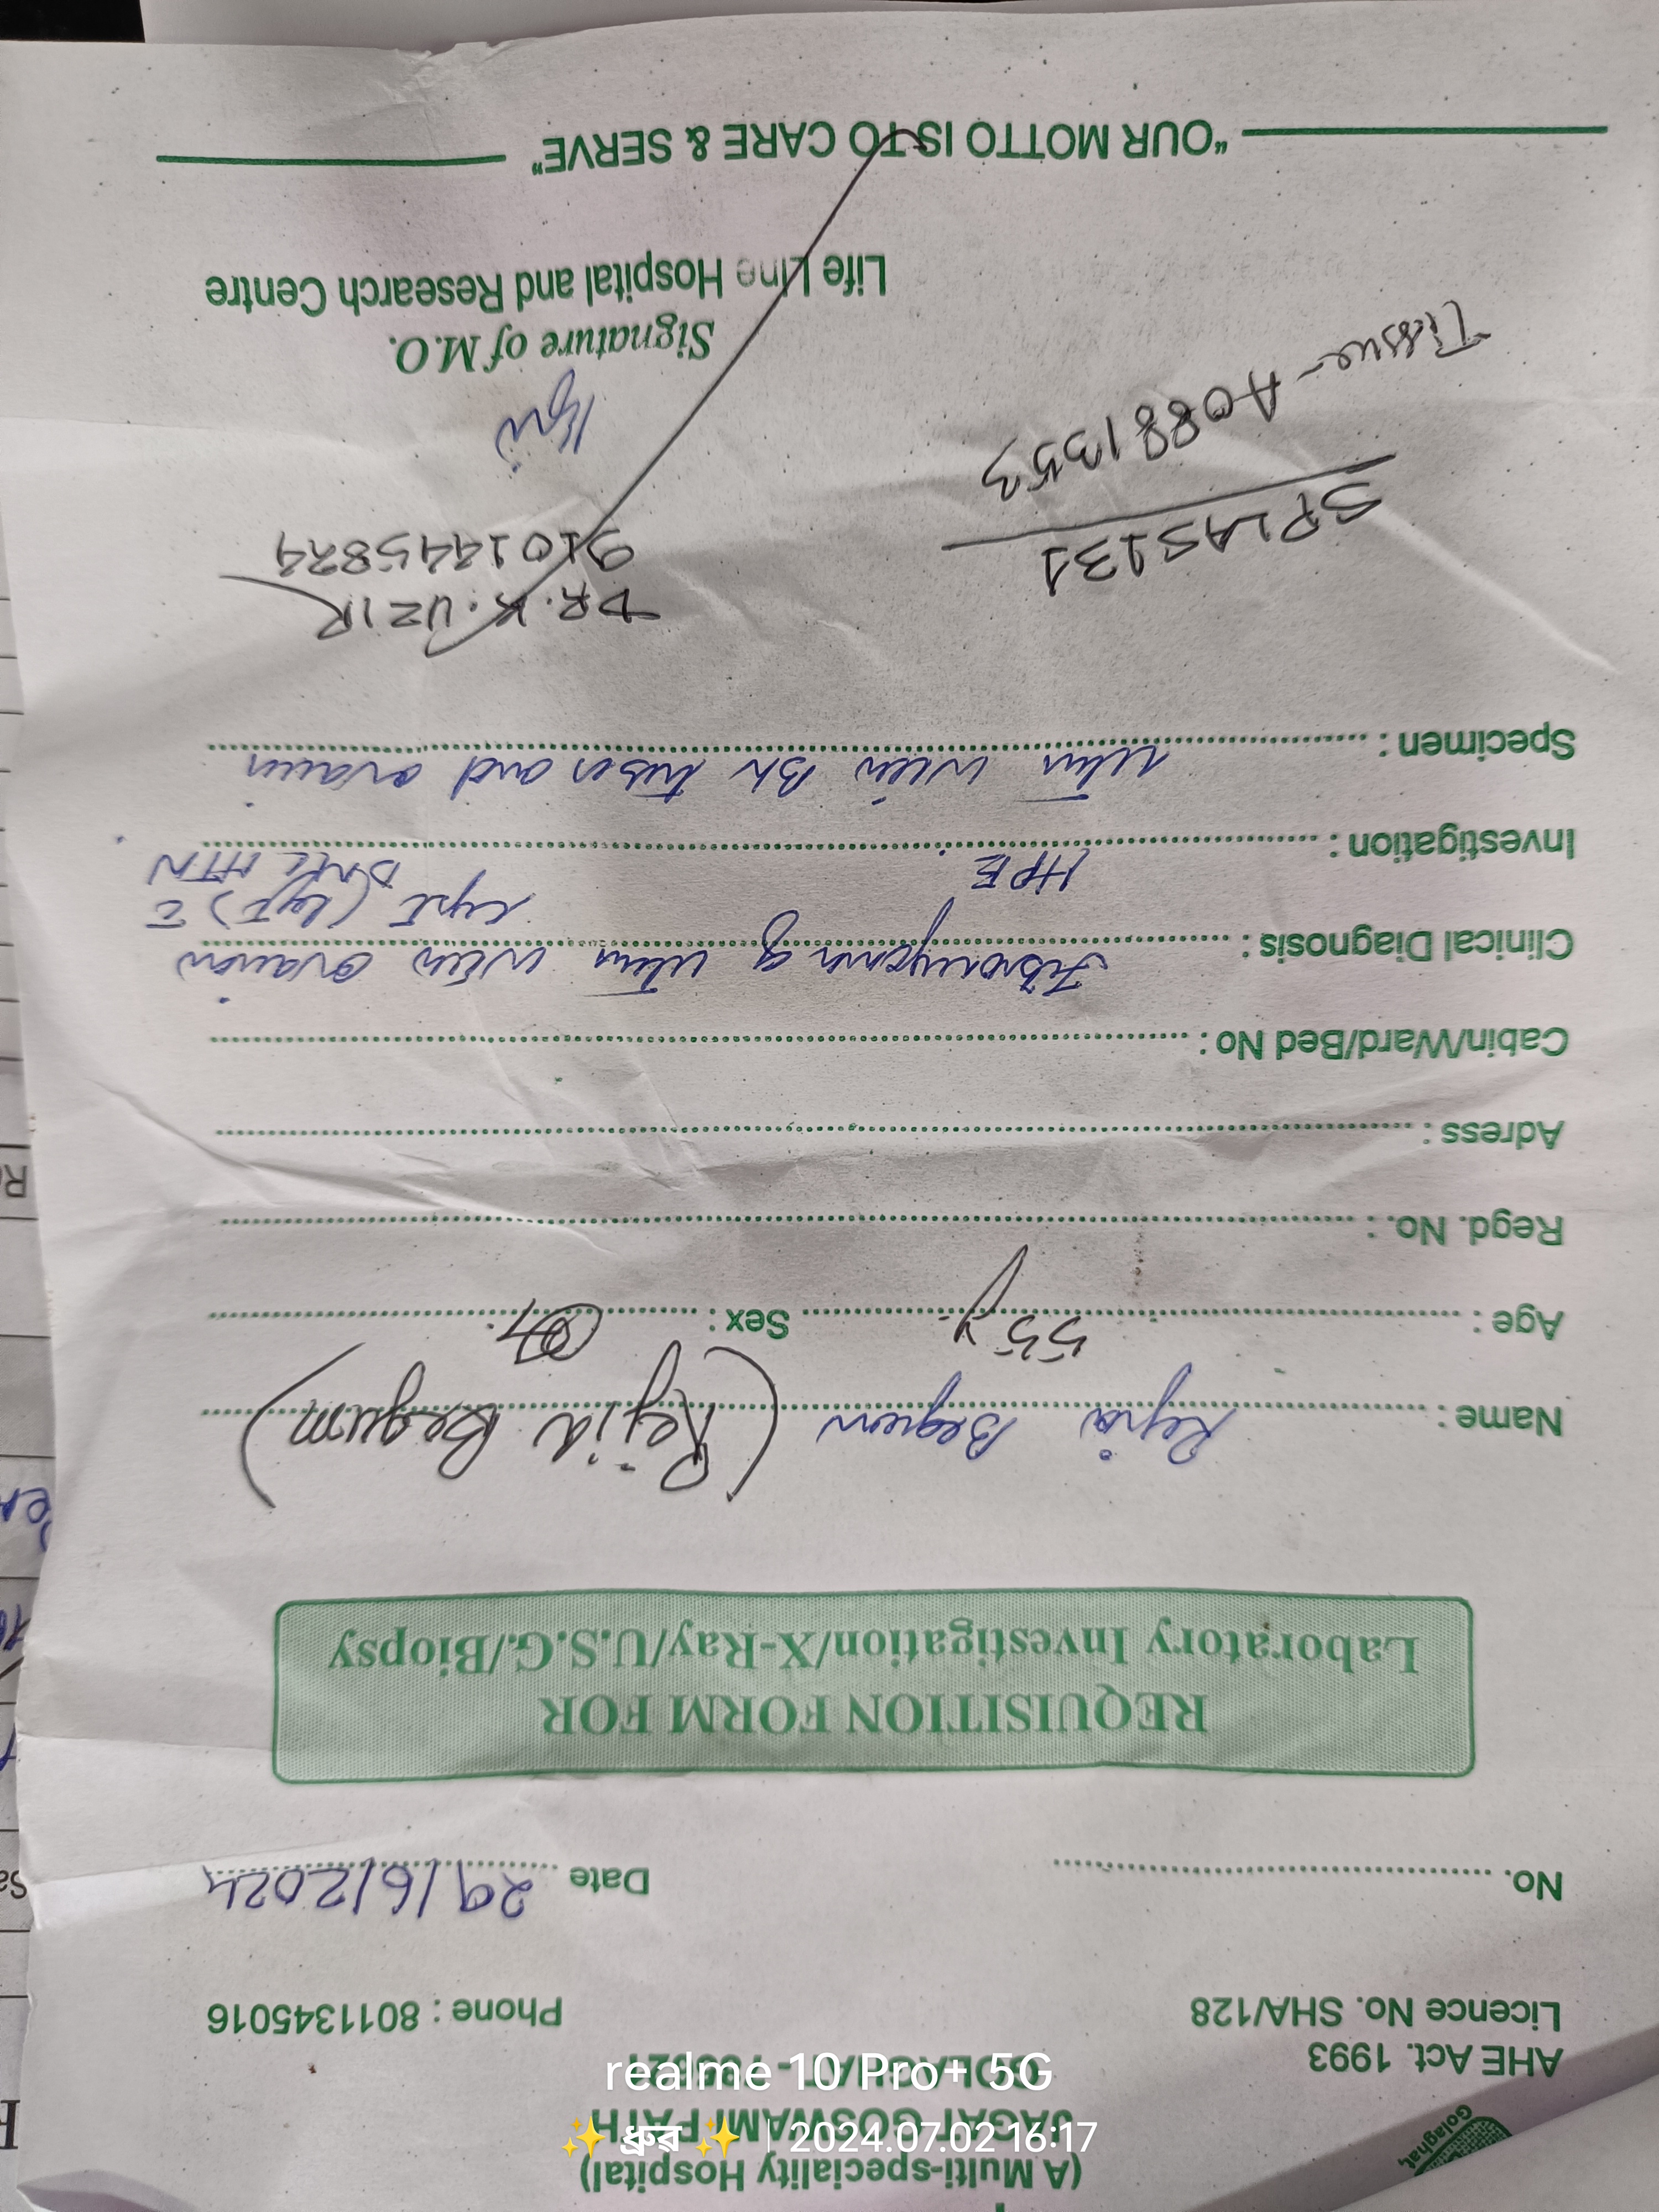 (A Multi-speciality Hospital)
JAGAT GOSWAMI PATH
GOLAGHAT - 785621
AHE Act. 1993
Licence No. SHA/128
Phone : 8011345016
Golaghat
No.
Date 29/6/2024
REQUISITION FORM FOR
Laboratory Investigation/X-Ray/U.S.G./Biopsy
Name : Rejia Begum (Rejia Begum)
Age : 55 y. Sex :
Regd. No. :
Adress :
Cabin/Ward/Bed No :
Clinical Diagnosis : Fibromyoma of uterus with ovarian
cyst (left) c̄
HTN
Investigation : HPE
Specimen : with B/L tubes and ovaries
SPLAS131
Tissue - A0881353
DR. K. UZIR
9101445874
Signature of M.O.
Life Line Hospital and Research Centre
"OUR MOTTO IS TO CARE & SERVE"
realme 10 Pro+ 5G
✨ ধ্ৰুৱ ✨ | 2024.07.02 16:17